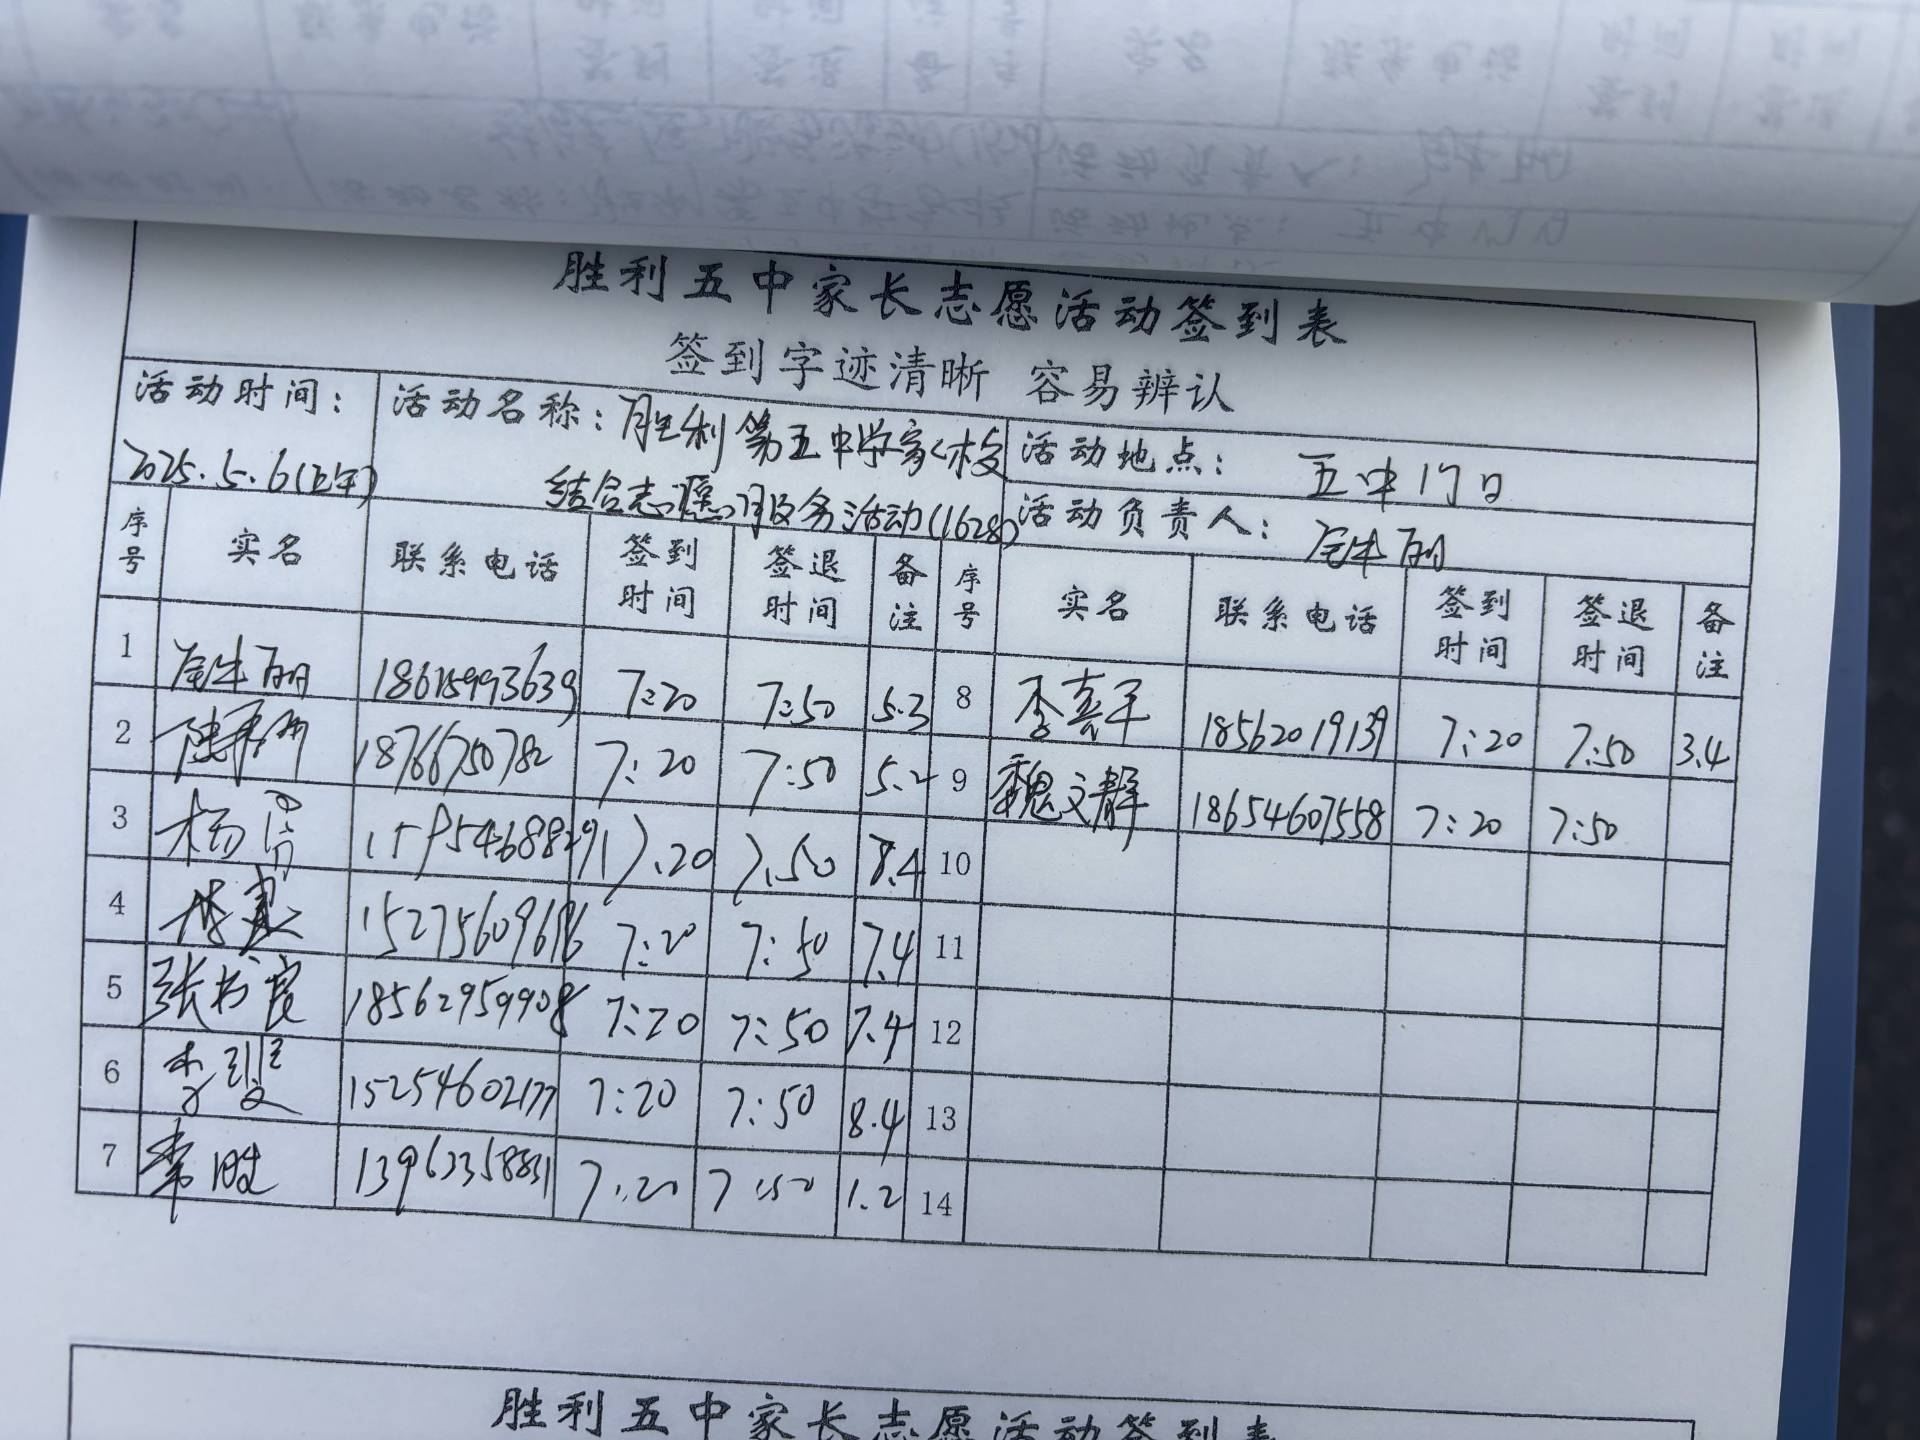 胜利五中家长志愿活动签到表
签到字迹清晰 容易辨认
活动时间：
2025.5.6(上午)
活动名称：胜利第五中学家校
结合志愿服务活动(1628)
活动地点： 五中门口
活动负责人：
序号 实名 联系电话 签到时间 签退时间 备注 序号 实名 联系电话 签到时间 签退时间 备注
1 18615993639 7:20 7:50 5.3 8 李喜军 18562019139 7:20 7:50 3.4
2 18766750782 7:20 7:50 5.2 9 魏文静 18654607558 7:20 7:50
3 杨 7.20 7.50 8.4 10
4 7:20 7:50 7.4 11
5 张书良 18562959908 7:20 7:50 7.4 12
6 15254602177 7:20 7:50 8.4 13
7 常胜 7.20 7:50 1.2 14
胜利五中家长志愿活动签到表